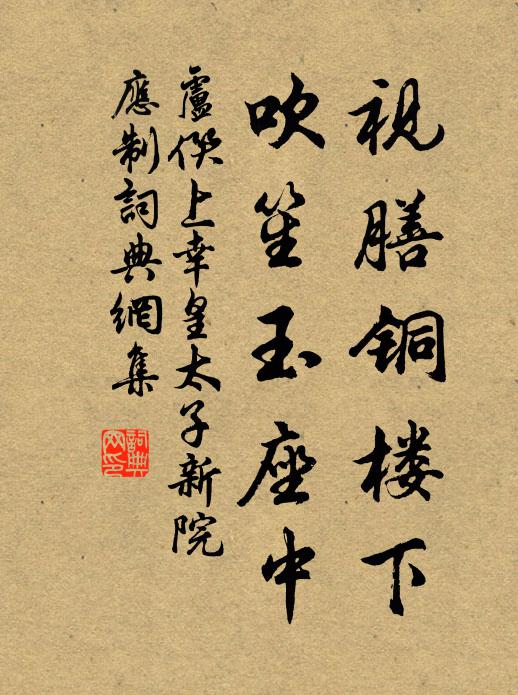 视膳铜楼下
吹笙玉座中
盧僎上幸皇太子新院
應制詞典網集
詞典網印